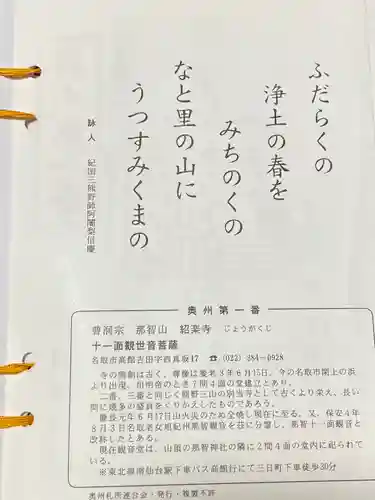 ふだらくの
浄土の春を
みちのくの
なと里の山に
うつすみくまの
詠人 紀国三熊野師阿闍梨信慶
奥州第一番
曹洞宗 那智山 紹楽寺 じょうがくじ
十一面観世音菩薩
名取市高館吉田字西真坂17 ☎(022)384-0928
寺の開創は古く、尊像は養老3年6月15日、今の名取市閖上の浜
より出現、恒明帝のとき7間4面の堂建立とあり。
二番、三番と同じく熊野三山の別当寺として古くより栄え、長い
間に幾多の盛衰をくりかえしたものであろう。
慶長元年6月17日山火災のため全焼し現在に至る。又、保安4年
8月3日名取老女現紀州那智観音を茲に分霊し、那智十一面観音と
改称したとある。
現在観音堂は、山頂の那智神社の隣に2間4面の堂内に祀られて
いる。
※東北線南仙台駅下車バス高館行にて三日町下車徒歩30分
奥州札所連合会・発行・複製不許